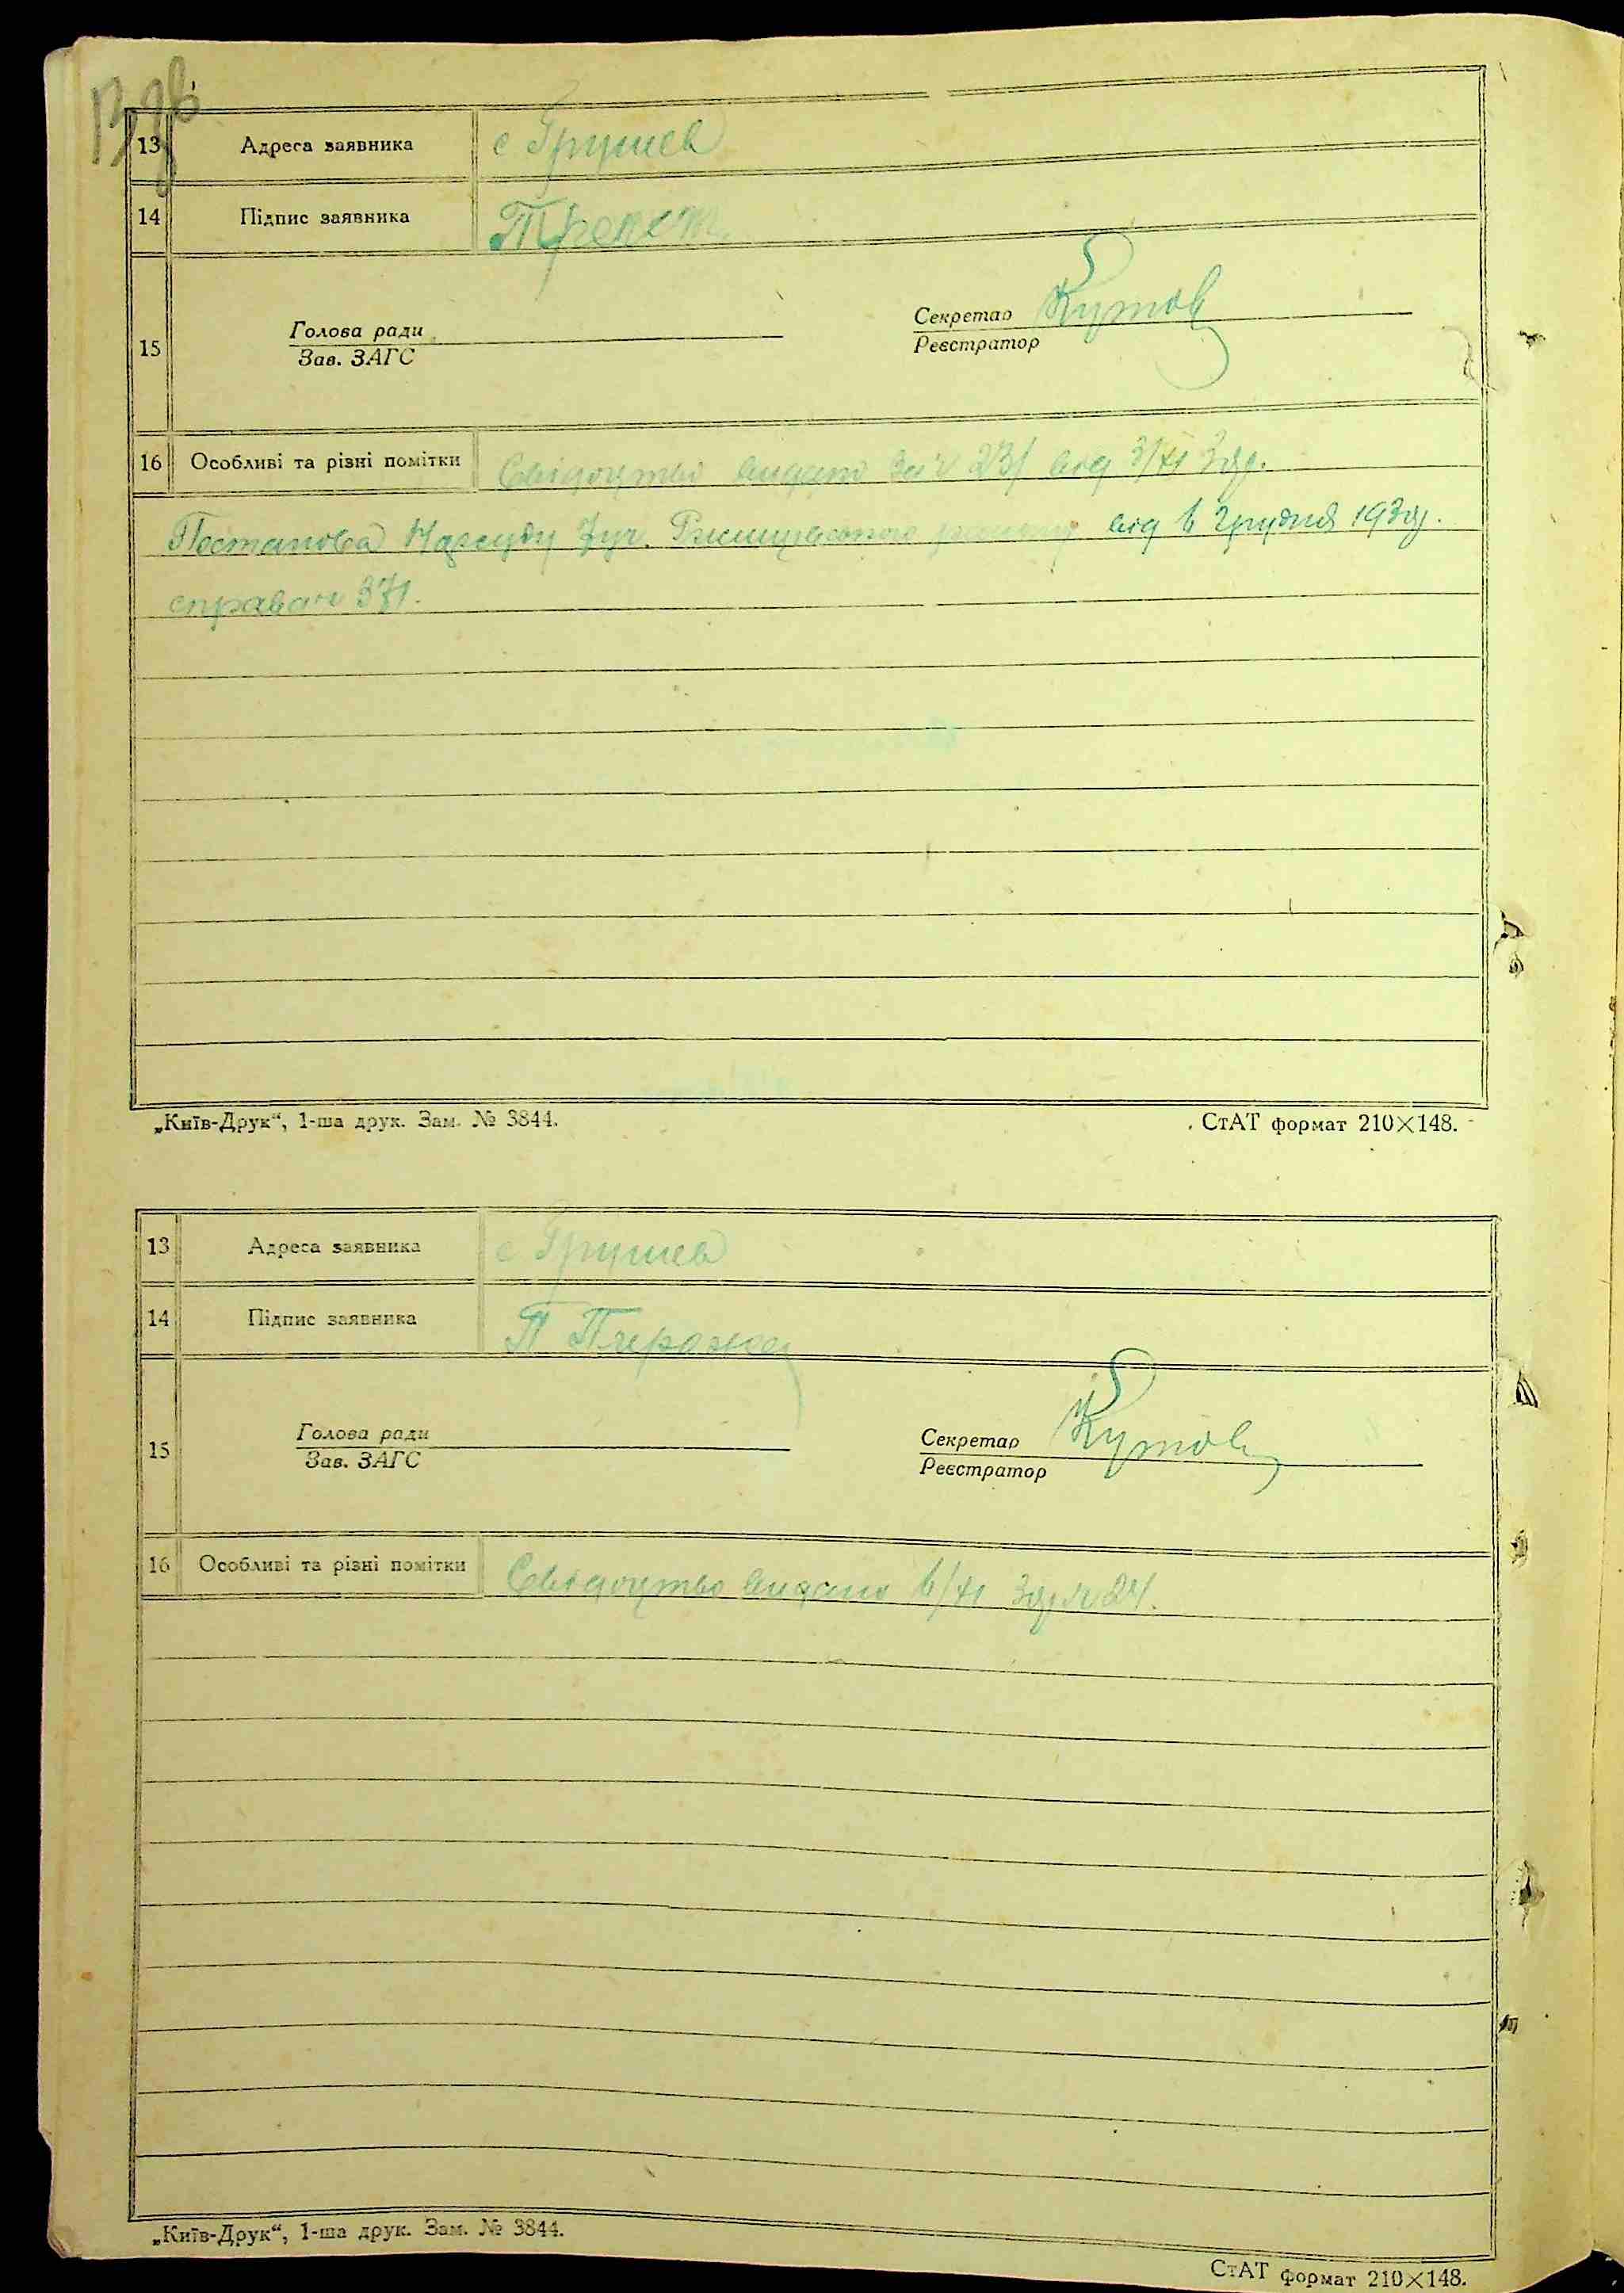 13 Адреса заявника с Грушев
14 Підпис заявника
15 Голова ради Секретар Кутов
Зав. ЗАГС Реєстратор
16 Особливі та різні помітки Свідоцтво видано за № 23/ від 3/XI
Постанова Нарсуду Ржищівського району від 6 грудня 193
справа № 371.
„Київ-Друк“, 1-ша друк. Зам. № 3844. СтАТ формат 210×148.
13 Адреса заявника с Грушев
14 Підпис заявника П
15 Голова ради Секретар Кутов
Зав. ЗАГС Реєстратор
16 Особливі та різні помітки Свідоцтво видано 6/XI № 24.
„Київ-Друк“, 1-ша друк. Зам. № 3844.
СтАТ формат 210×148.